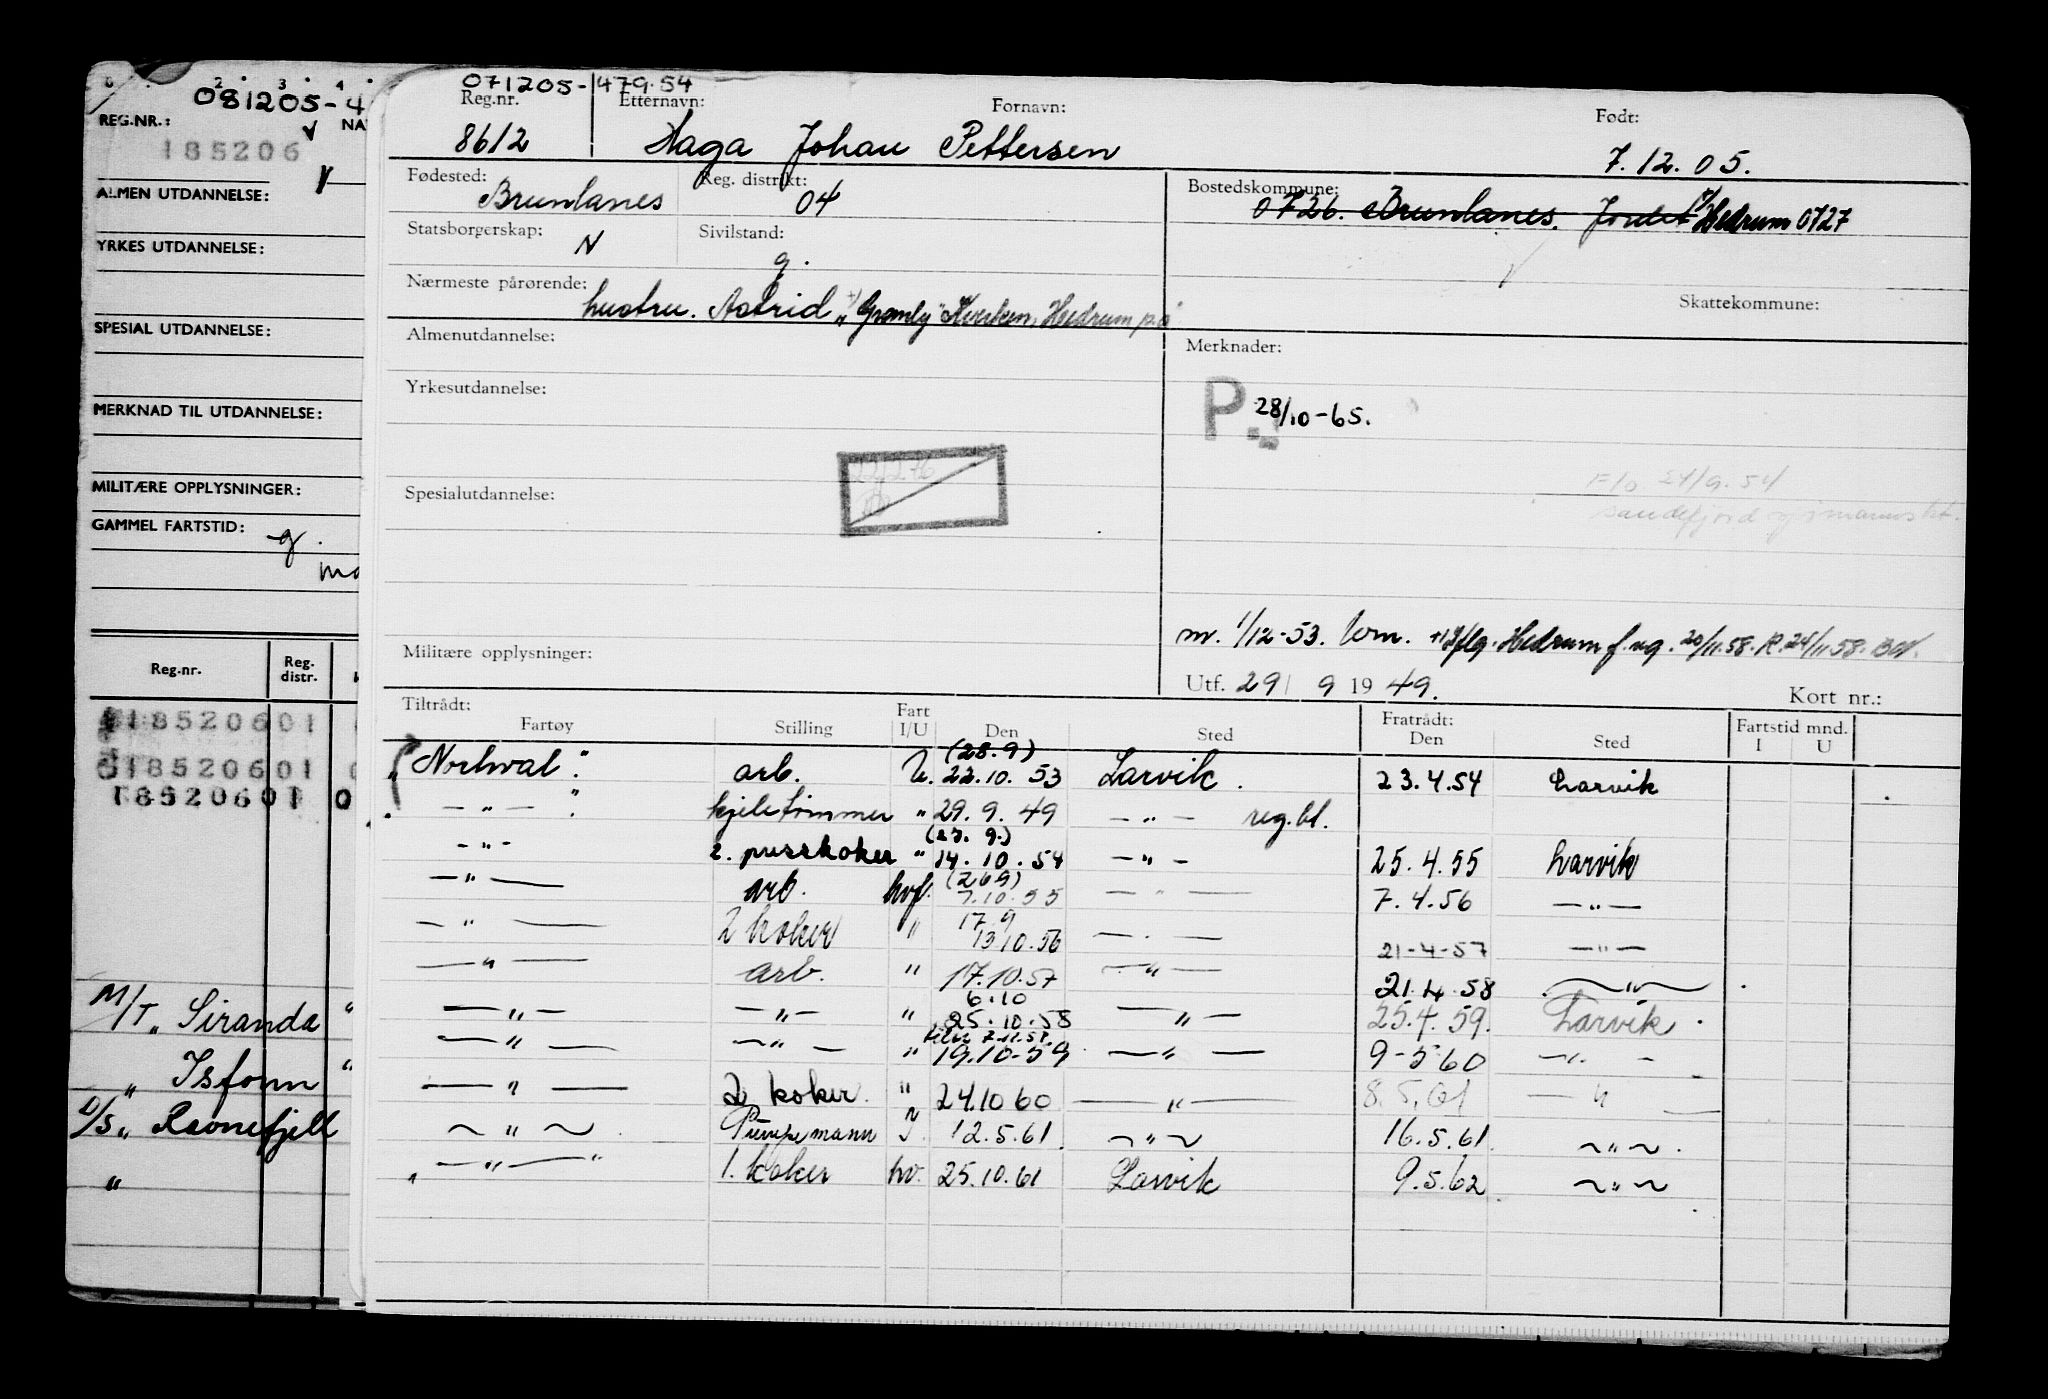 081205-4
REG.NR.:
NA
185206
ALMEN UTDANNELSE:
YRKES UTDANNELSE:
SPESIAL UTDANNELSE:
MERKNAD TIL UTDANNELSE:
MILITÆRE OPPLYSNINGER:
GAMMEL FARTSTID:
g.
Reg.nr.
Reg. distr.
18520601
18520601
18520601 0
M/T „ Siranda "
„ Isfonn "
D/S „ Ravnefjell
"
071205-479.54
Reg.nr. Etternavn: Fornavn: Født:
8612 Haga Johan Pettersen 7.12.05.
Fødested: Brunlanes Reg. distrikt: 04 Bostedskommune: 0726. Brunlanes. Jordet Hedrum 0727
Statsborgerskap: N Sivilstand: g.
Nærmeste pårørende: hustru. Astrid „Granly" Kverken, Hedrum p.å
Skattekommune:
Almenutdannelse:
Merknader:
Yrkesutdannelse:
P. 28/10-65.
Spesialutdannelse:
F/o 24/9.54
Militære opplysninger:
m. 1/12-53. +Iflg. Hedrum f.reg. 20/11.58. R.24/11 58.
Utf. 29/ 9 1949. Kort nr.:
Tiltrådt: Fartøy Stilling Fart I/U Den Sted Fratrådt: Den Sted Fartstid mnd. I U
(28.9)
„Norhval". arb. U. 22.10.53 Larvik. 23.4.54 Larvik
— " — kjeletrimmer " 29.9.49 — " — reg.bl.
(27.9.)
— " — 2. presskoker " 14.10.54 — " — 25.4.55 Larvik
(26 9)
— " — arb. hvf. 7.10.55 — " — 7.4.56 — " —
17 9
— " — 2 koker " 13 10.56 — " — 21-4-57 — " —
— " — arb. " 17.10.57 — " — 21.4.58 — " —
6.10
— " — — " — " 25.10.58 — " — 25.4.59. Larvik.
— " — — " — " 19.10-59 — " — 9-5 60 — " —
— " — 2 koker. " 24.10 60 — " — 8.5.61 — " —
— " — Pumpemann 12.5.61. — " — 16.5.61. — " —
„ — " — " 1. koker hv. 25.10.61 Larvik 9.5.62 — " —